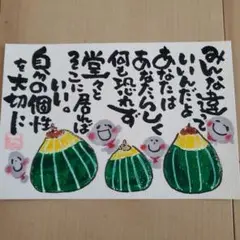 みんな違って
いいんだよ
あなたは
あなたらしく
何も恐れず
堂々と
そこに居れば
いい。
自分の個性
を大切に